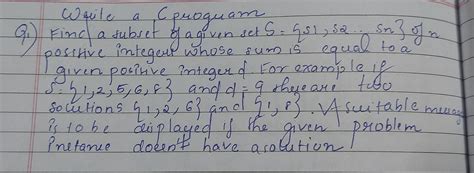 Write a C program
Q1) Find a subset of a given set S = {s1, s2 .. sn} of n
positive integers whose sum is equal to a
given positive integer d. For example if
S = {1, 2, 5, 6, 8} and d = 9 there are two
solutions {1, 2, 6} and {1, 8}. A suitable message
is to be displayed if the given problem
instance doesn't have a solution